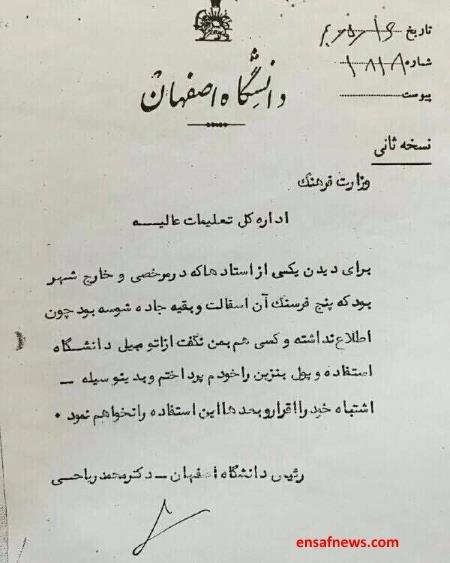 تاریخ
شماره ۱۸۱۸
پیوست
دانشگاه اصفهان
نسخه ثانی
وزارت فرهنگ
اداره کل تعلیمات عالیه
برای دیدن یکی از استادها که در مرخصی و خارج شهر
بود که پنج فرسنگ آن اسفالت و بقیه جاده شوسه بود چون
اطلاع نداشته و کسی هم بمن نگفت از اتومبیل دانشگاه
استفاده و پول بنزین را خودم پرداختم و بدینوسیله –
اشتباه خود را اقرار و بعدها این استفاده را نخواهم نمود .
رئیس دانشگاه اصفهان – دکتر محمد ریاحی
ensafnews.com